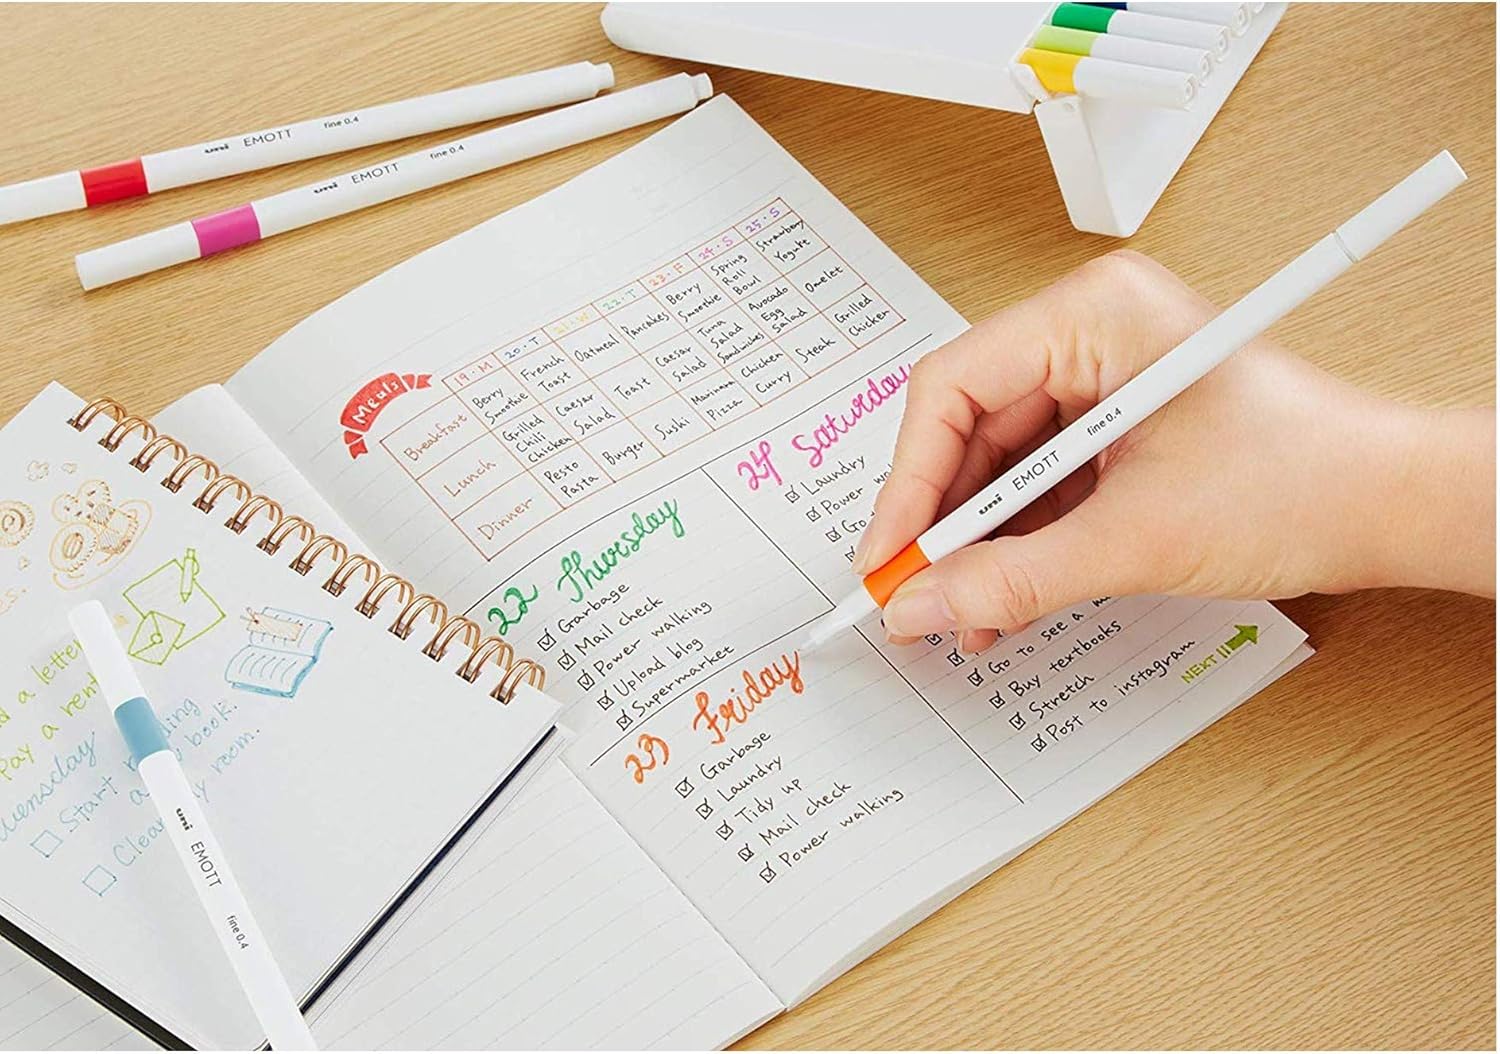 uni EMOTT fine 0.4
uni EMOTT fine 0.4
Meals
19・M 20・T 21・W 22・T 23・F 24・S 25・S
Breakfast
Berry Smoothie
French Toast
Oatmeal
Pancakes
Berry Smoothie
Spring Roll Bowl
Strawberry Yogute
Lunch
Grilled Chili Chicken
Caesar Salad
Toast
Caesar Salad
Tuna Salad Sandwiches
Avocado Egg Salad
Omelet
Dinner
Pesto Pasta
Burger
Sushi
Marinara Pizza
Chicken Curry
Steak
Grilled Chicken
22 Thursday
Garbage
Mail check
Power walking
Upload blog
Supermarket
23 Friday
Garbage
Laundry
Tidy up
Mail check
Power walking
24 Saturday
Laundry
Power
Go
Go to see a
Buy textbooks
Stretch
Post to instagram
NEXT
uni EMOTT fine 0.4
a letter
Pay a
Start
book.
room.
uni EMOTT fine 0.4